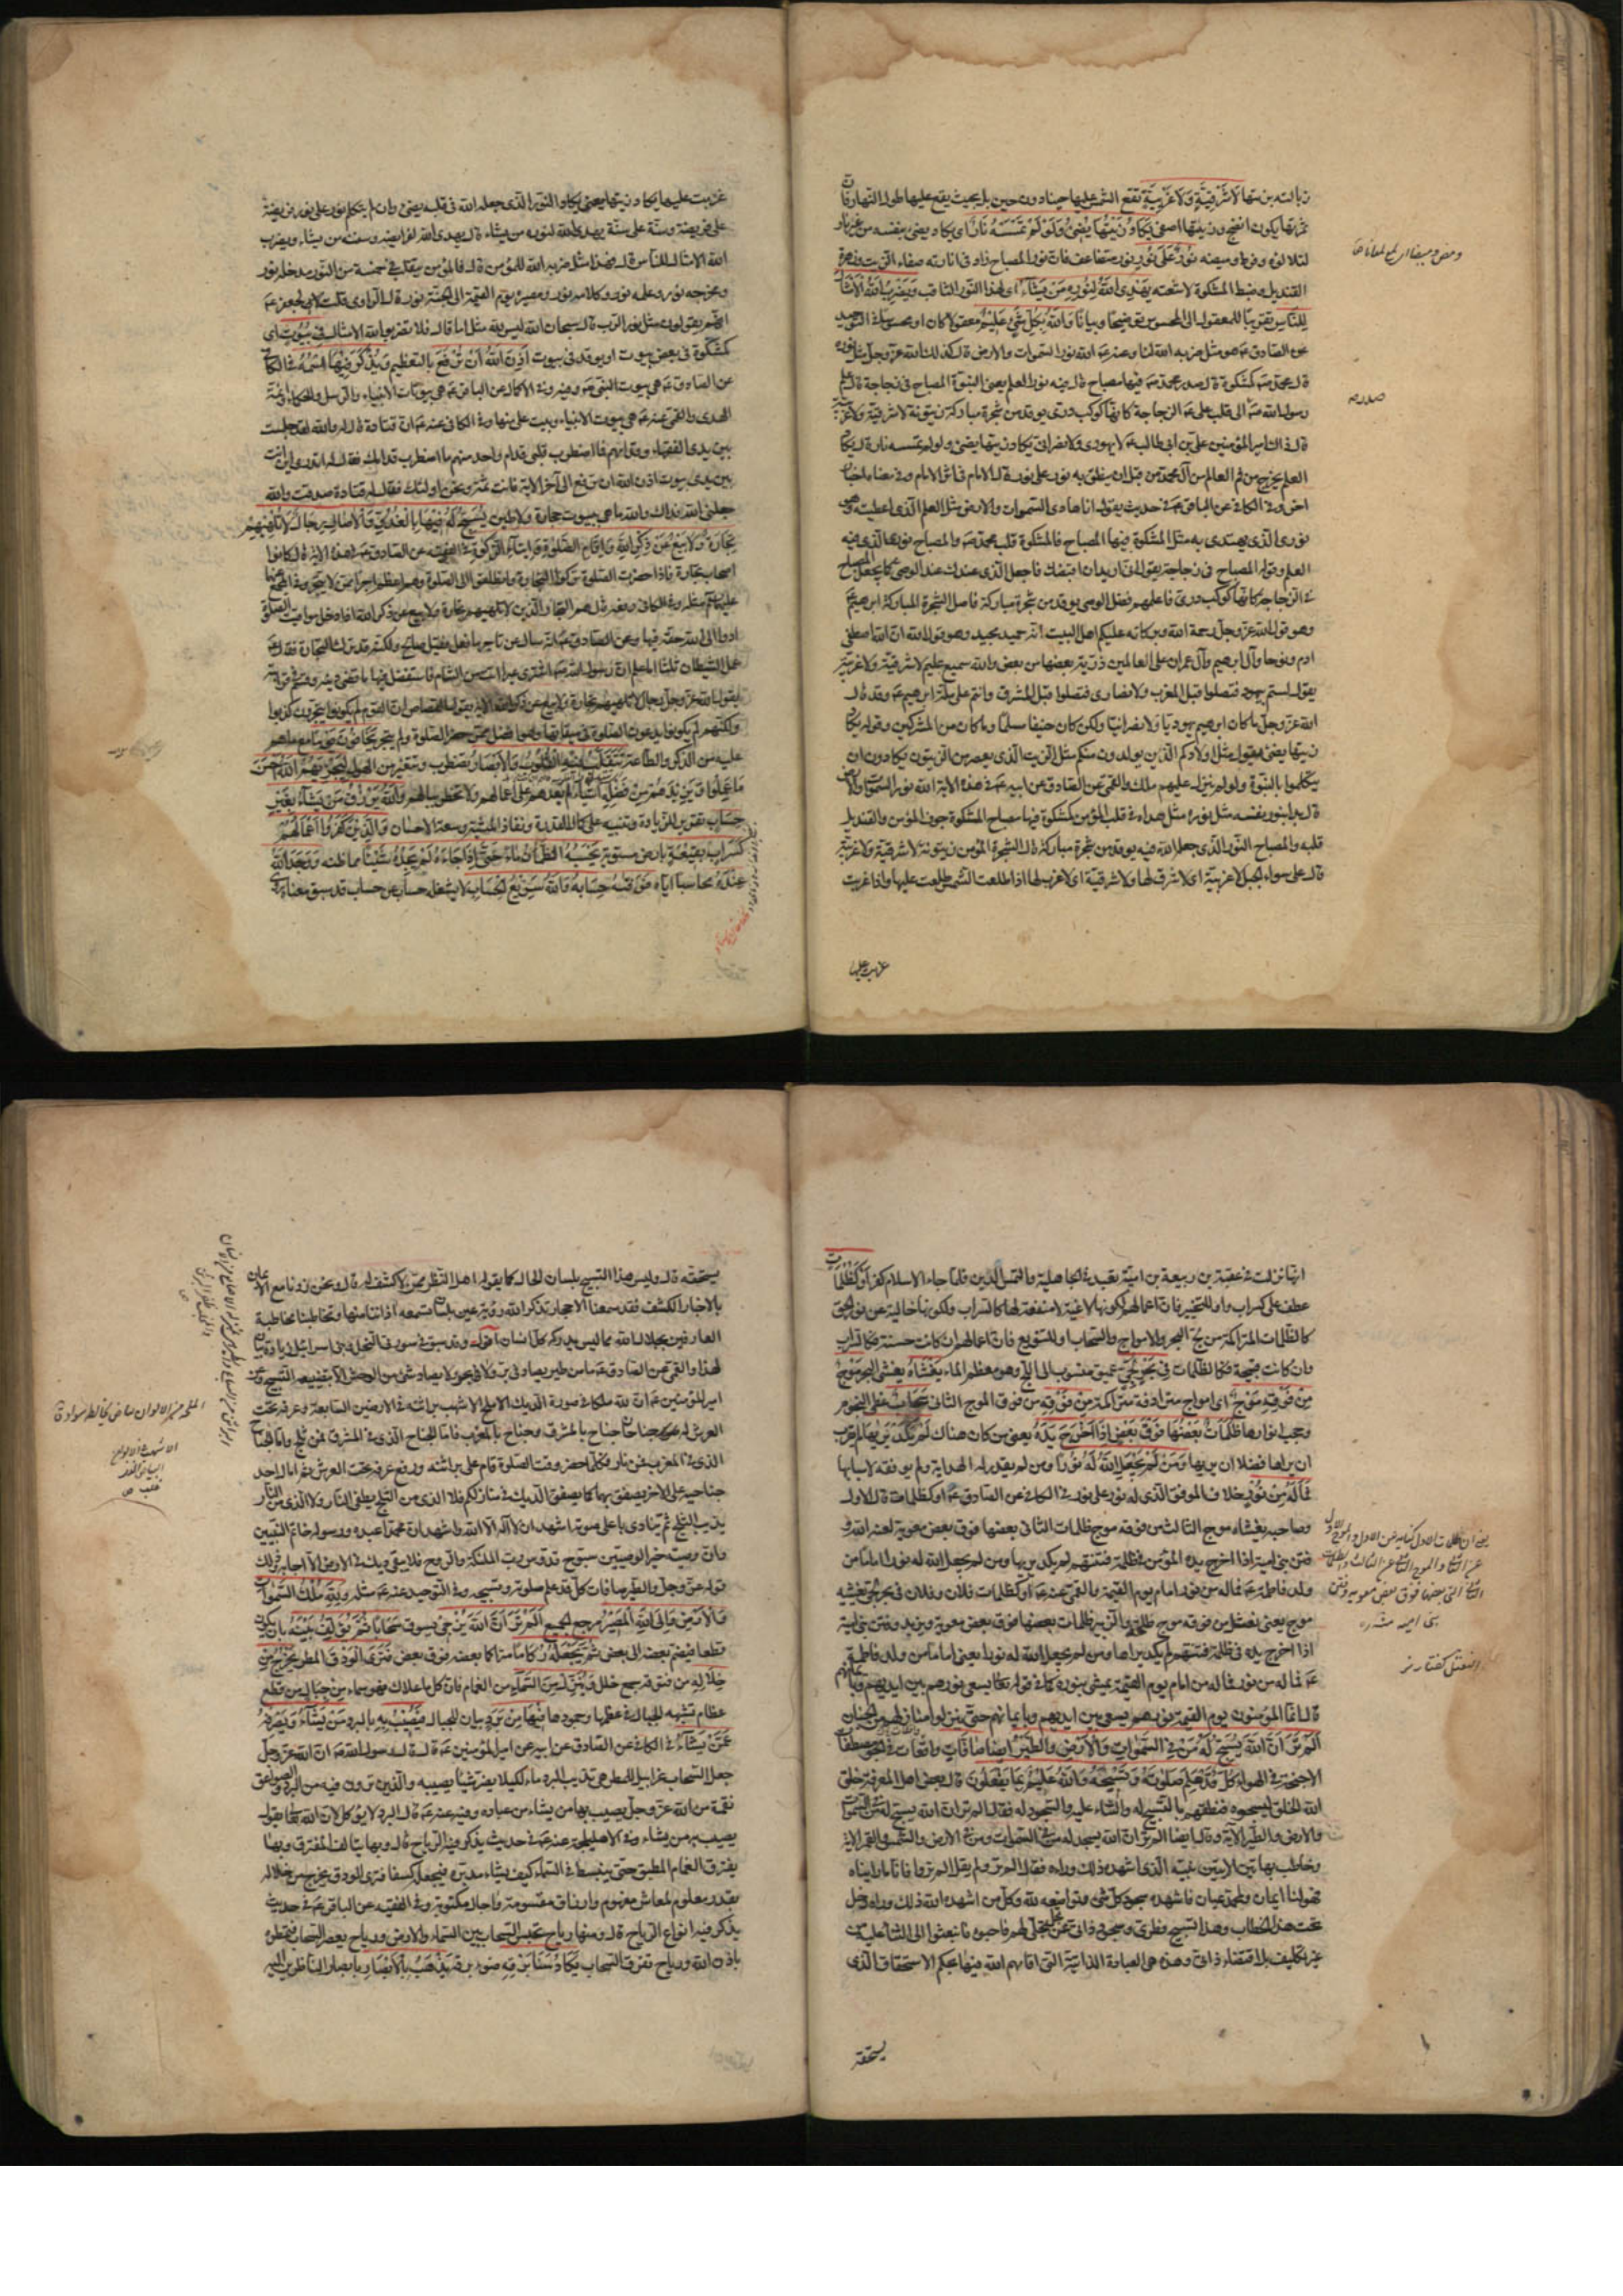 زبالته بزيتها لا شرقية ولا غربية تقع الشمس عليها حينا دون حين بل بحيث يقع عليها طول النهار فان
ثمرتها يكون انضج وزيتها اصفى يكاد زيتها يضيء ولو لم تمسسه نار اي يكاد يضيء بنفسه من غير نار
لتلالؤه وفرط وميضه نور على نور نور متضاعف فان نور المصباح زاد في انارته صفاء الزيت وزهرة
القنديل وضبط المشكوة لاشعته يهدي الله لنوره من يشاء اي لهذا النور الثاقب ويضرب الله الامثال
للناس تقريبا للمعقول الى المحسوس توضيحا وبيانا والله بكل شيء عليم معقولا كان او محسوسا في التوحيد
عن الصادق ع هو مثل ضربه الله لنا وعنه ع الله نور السموات والارض قال كذلك الله عز وجل مثل نوره
قال محمد ص كمشكوة قال صدر محمد ص فيها مصباح قال فيه نور العلم يعني النبوة المصباح في زجاجة قال علم
رسول الله ص الى قلب علي ع الزجاجة كانها كوكب دري يوقد من شجرة مباركة زيتونة لا شرقية ولا غربية
قال ذاك امير المؤمنين علي بن ابي طالب ع لا يهودي ولا نصراني يكاد زيتها يضيء ولو لم تمسسه نار قال يكاد
العلم يخرج من فم العالم من آل محمد من قبل ان ينطق به نور على نور قال الامام في اثر الامام وفي معناه اخبار
اخر وفي الكافي عن الباقر ع في حديث يقول انا هادي السموات والارض مثل العلم الذي اعطيته وهو
نوري الذي يهتدى به مثل المشكوة فيها المصباح فالمشكوة قلب محمد ص والمصباح نوره الذي فيه
العلم وقوله المصباح في زجاجة يقول اني اريد ان اقبضك فاجعل الذي عندك عند الوصي كما يجعل المصباح
في الزجاجة كانها كوكب دري فاعلمهم فضل الوصي يوقد من شجرة مباركة فاصل الشجرة المباركة ابرهيم
وهو قول الله عز وجل رحمة الله وبركاته عليكم اهل البيت انه حميد مجيد وهو قول الله ان الله اصطفى
ادم ونوحا وآل ابرهيم وآل عمران على العالمين ذرية بعضها من بعض والله سميع عليم لا شرقية ولا غربية
يقول لستم بيهود فتصلوا قبل المغرب ولا نصارى فتصلوا قبل المشرق وانتم على ملة ابرهيم ع وقد قال
الله عز وجل ما كان ابرهيم يهوديا ولا نصرانيا ولكن كان حنيفا مسلما وما كان من المشركين وقوله يكاد
زيتها يضيء يقول مثل اولادكم الذين يولدون منكم مثل الزيت الذي يعصر من الزيتون يكادون ان
يتكلموا بالنبوة ولو لم ينزل عليهم ملك والقمي عن الصادق عن ابيه ع في هذه الاية الله نور السموات والارض
قال بدا بنور نفسه مثل نوره مثل هداه في قلب المؤمن كمشكوة فيها مصباح المشكوة جوف المؤمن والقنديل
قلبه والمصباح النور الذي جعله الله فيه يوقد من شجرة مباركة قال الشجرة المؤمن زيتونة لا شرقية ولا غربية
قال على سواء الجبل لا غربية اي لا شرق لها ولا شرقية اي لا غرب لها اذا طلعت الشمس طلعت عليها واذا غربت
غربت عليها
صدره
غربت عليها يكاد زيتها يعني يكاد النور الذي جعله الله في قلبه يضيء وان لم يتكلم نور على نور فريضة
على فريضة وسنة على سنة يهدي الله لنوره من يشاء قال يهدي الله لفرايضه وسننه من يشاء ويضرب
الله الامثال للناس قال فهذا مثل ضربه الله للمؤمن قال فالمؤمن يتقلب في خمسة من النور مدخله نور
ومخرجه نور وعلمه نور وكلامه نور ومصيره يوم القيمة الى الجنة نور قال الراوي قلت لابي جعفر ع
انهم يقولون مثل نور الرب قال سبحان الله ليس لله مثل اما قال فلا تضربوا لله الامثال في بيوت اي
كمشكوة في بعض بيوت او يوقد في بيوت اذن الله ان ترفع بالتعظيم ويذكر فيها اسمه في الكافي
عن الصادق ع هي بيوت النبي ص وفيه وفي الاكمال عن الباقر ع هي بيوتات الانبياء والرسل والحكماء وائمة
الهدى والقمي عنه ع هي بيوت الانبياء وبيت علي منها وفي الكافي عنه ع ان قتادة قال له والله لقد جلست
بين يدي الفقهاء وقدامهم فما اضطرب قلبي قدام واحد منهم ما اضطرب قدامك فقال له اتدري اين انت
بين يدي بيوت اذن الله ان ترفع الى آخر الاية فانت ثمة ونحن اولئك فقال له قتادة صدقت والله
جعلني الله فداك والله ما هي بيوت حجارة ولا طين يسبح له فيها بالغدو والاصال رجال لا تلهيهم
تجارة ولا بيع عن ذكر الله واقام الصلوة وايتاء الزكوة في الفقيه عن الصادق ع في هذه الاية قال كانوا
اصحاب تجارة فاذا حضرت الصلوة تركوا التجارة وانطلقوا الى الصلوة وهم اعظم اجرا ممن لا يتجر وفي المجمع عنهما
عليهما السلام مثله وفي الكافي رفعه قال هم التجار الذين لا تلهيهم تجارة ولا بيع عن ذكر الله اذا دخل مواقيت الصلوة
ادوا الى الله حقه فيها وعن الصادق ع انه سال عن تاجر ما فعل فقيل صالح ولكنه قد ترك التجارة فقال ع
عمل الشيطان ثلثا اما علم ان رسول الله ص اشترى عيرا اتت من الشام فاستفضل فيها ما قضى دينه وقسم في قرابته
يقول الله عز وجل رجال لا تلهيهم تجارة ولا بيع عن ذكر الله الاية يقول القصاص ان القوم لم يكونوا يتجرون كذبوا
ولكنهم لم يكونوا يدعون الصلوة في ميقاتها وهو افضل ممن حضر الصلوة ولم يتجر يخافون يوما مع ما هم
عليه من الذكر والطاعة تتقلب فيه القلوب والابصار تضطرب وتتغير من الهول ليجزيهم الله احسن
ما عملوا ويزيدهم من فضله اشياء لم يعدهم على اعمالهم ولا تخطر ببالهم والله يرزق من يشاء بغير
حساب تقرير للزيادة وتنبيه على كمال القدرة ونفاذ المشية وسعة الاحسان والذين كفروا اعمالهم
كسراب بقيعة بارض مستوية يحسبه الظمآن ماء حتى اذا جاءه لم يجده شيئا مما ظنه ووجد الله
عنده محاسبا اياه فوفيه حسابه والله سريع الحساب لا يشغله حساب عن حساب قد سبق معناه
انها نزلت في عقبة بن ربيعة بن امية تعبد في الجاهلية والتمس الدين فلما جاء الاسلام كفر او كظلمات
عطف على كسراب واو للتخيير فان اعمالهم لكونها لاغية لا منفعة لها كالسراب ولكونها خالية عن نور الحق
كالظلمات المتراكمة من لج البحر والامواج والسحاب او للتنويع فان اعمالهم ان كانت حسنة فكالسراب
وان كانت قبيحة فكالظلمات في بحر لجي عميق منسوب الى اللج وهو معظم الماء يغشاه يغشى البحر موج
من فوقه موج اي امواج مترادفة متراكمة من فوقه من فوق الموج الثاني سحاب غطى النجوم
وحجب انوارها ظلمات بعضها فوق بعض اذا اخرج يده يعني من كان هناك لم يكد يريها لم يقرب
ان يراها فضلا ان يريها ومن لم يجعل الله له نورا ومن لم يقدر له الهداية ولم يوفقه لاسبابها
فما له من نور خلاف الموفق الذي له نور على نور في الكافي عن الصادق ع او كظلمات قال الاول
وصاحبه يغشاه موج الثالث من فوقه موج ظلمات الثاني بعضها فوق بعض معوية لعنه الله و
فتن بني امية اذا اخرج يده المؤمن في ظلمة فتنتهم لم يكد يريها ومن لم يجعل الله له نورا اماما من
ولد فاطمة ع فما له من نور امام يوم القيمة والقمي عنه ع او كظلمات فلان وفلان في بحر لجي يغشيه
موج يعني نعثل من فوقه موج طلحة والزبير ظلمات بعضها فوق بعض معوية ويزيد وفتن بني امية
اذا اخرج يده في ظلمة فتنتهم لم يكد يراها ومن لم يجعل الله له نورا يعني اماما من ولد فاطمة
ع فما له من نور فما له من امام يوم القيمة يمشي بنوره كما في قوله تعالى يسعى نورهم بين ايديهم وبايمانهم
قال انما المؤمنون يوم القيمة نورهم يسعى بين ايديهم وبايمانهم حتى ينزلوا منازلهم من الجنان
الم تر ان الله يسبح له من في السموات والارض والطير ايضا صافات واقفات في الجو مصطفات
الاجنحة في الهواء كل قد علم صلوته وتسبيحه والله عليم بما يفعلون قال بعض اهل المعرفة خلق
الله الخلق ليسبحوه فنطقهم بالتسبيح له والثناء عليه والسجود له فقال الم تر ان الله يسبح له من في السموات
والارض والطير الآية وقال ايضا الم تر ان الله يسجد له من في السموات ومن في الارض والشمس والقمر الاية
وخاطب بهاتين الايتين نبيه الذي اشهده ذلك وراه فقال الم تر ولم يقل الم تروا فانا ما رايناه
فهو لنا ايمان ولمحمد عيان فاشهده سجود كل شيء وتواضعه لله وكل من اشهده الله ذلك وراه دخل
تحت هذا الخطاب وهذا تسبيح فطري وسجود ذاتي عن تجل تجلى لهم فاحبوه فانبعثوا الى الثناء عليه من
غير تكليف بل اقتضاء ذاتي وهذه هي العبادة الذاتية التي اقامهم الله فيها بحكم الاستحقاق الذي
يستحقه
يستحقه قال وليس هذا التسبيح بلسان الحال كما يقوله اهل النظر ممن لا كشف له قال ونحن زدنا مع الايمان
بالاخبار الكشف فقد سمعنا الاحجار تذكر الله رؤية عين بلسان تسمعه اذاننا منها وتخاطبنا مخاطبة
العارفين بجلال الله مما ليس يدركه كل انسان اقول وقد سبق في سورتي النحل وبني اسرائيل زيادة بيان
لهذا والقمي عن الصادق ع ما من طير يصاد في بر ولا في بحر ولا يصاد شيء من الوحش الا بتضييعه التسبيح وعن
امير المؤمنين ع ان لله ملكا في صورة الديك الاملح الاشهب براثنه في الارضين السابعة وعرفه تحت
العرش له جناحان جناح بالمشرق وجناح بالمغرب فاما الجناح الذي في المشرق فمن ثلج واما الجناح
الذي في المغرب فمن نار وكلما حضر وقت الصلوة قام على براثنه ورفع عرفه تحت العرش ثم امال احد
جناحيه على الاخر يصفق بهما كما يصفق الديك في منازلكم فلا الذي من الثلج يطفئ النار ولا الذي من النار
يذيب الثلج ثم ينادي باعلى صوته اشهد ان لا اله الا الله واشهد ان محمدا عبده ورسوله خاتم النبيين
وان وصيه خير الوصيين سبوح قدوس رب الملئكة والروح فلا يبقى ديك في الارض الا اجابه وذلك
قوله عز وجل والطير صافات كل قد علم صلوته وتسبيحه وفي التوحيد عنه ع مثله ولله ملك السموات
والارض والى الله المصير مرجع الجميع الم تر ان الله يزجي يسوق سحابا ثم يؤلف بينه بان يكون
قطعا فيضم بعضه الى بعض ثم يجعله ركاما متراكما بعضه فوق بعض فترى الودق المطر يخرج من
خلاله من فتوقه جمع خلل وينزل من السماء من الغمام فان كل ما علاك فهو سماء من جبال من قطع
عظام تشبه الجبال في عظمها وجمودها فيها من برد بيان للجبال فيصيب به بالبرد من يشاء ويصرفه
عمن يشاء في الكافي عن الصادق عن ابيه عن امير المؤمنين ع قال قال رسول الله ص ان الله عز وجل
جعل السحاب غرابيل للمطر هي تذيب البرد ماء لكيلا يضر شيئا يصيبه والذي ترون فيه من البرد والصواعق
نقمة من الله عز وجل يصيب بها من يشاء من عباده وفيه عنه ع قال البرد لا يؤكل لان الله تعالى يقول
يصيب به من يشاء وفي الاهليلجة عنه ع في حديث يذكر فيه الرياح قال وبها يتالف المفترق وبها
يفترق الغمام المطبق حتى ينبسط في السماء كيف يشاء مدبره فيجعله كسفا فترى الودق يخرج من خلاله
بقدر معلوم لمعاش مفهوم وارزاق مقسومة واجال مكتوبة وفي الفقيه عن الباقر ع في حديث
يذكر فيه انواع الرياح قال ومنها رياح تحبس السحاب بين السماء والارض ورياح يعصر السحاب فتمطره
باذن الله ورياح تفرق السحاب يكاد سنا برقه ضوء برقه يذهب بالابصار بابصار الناظرين اليه